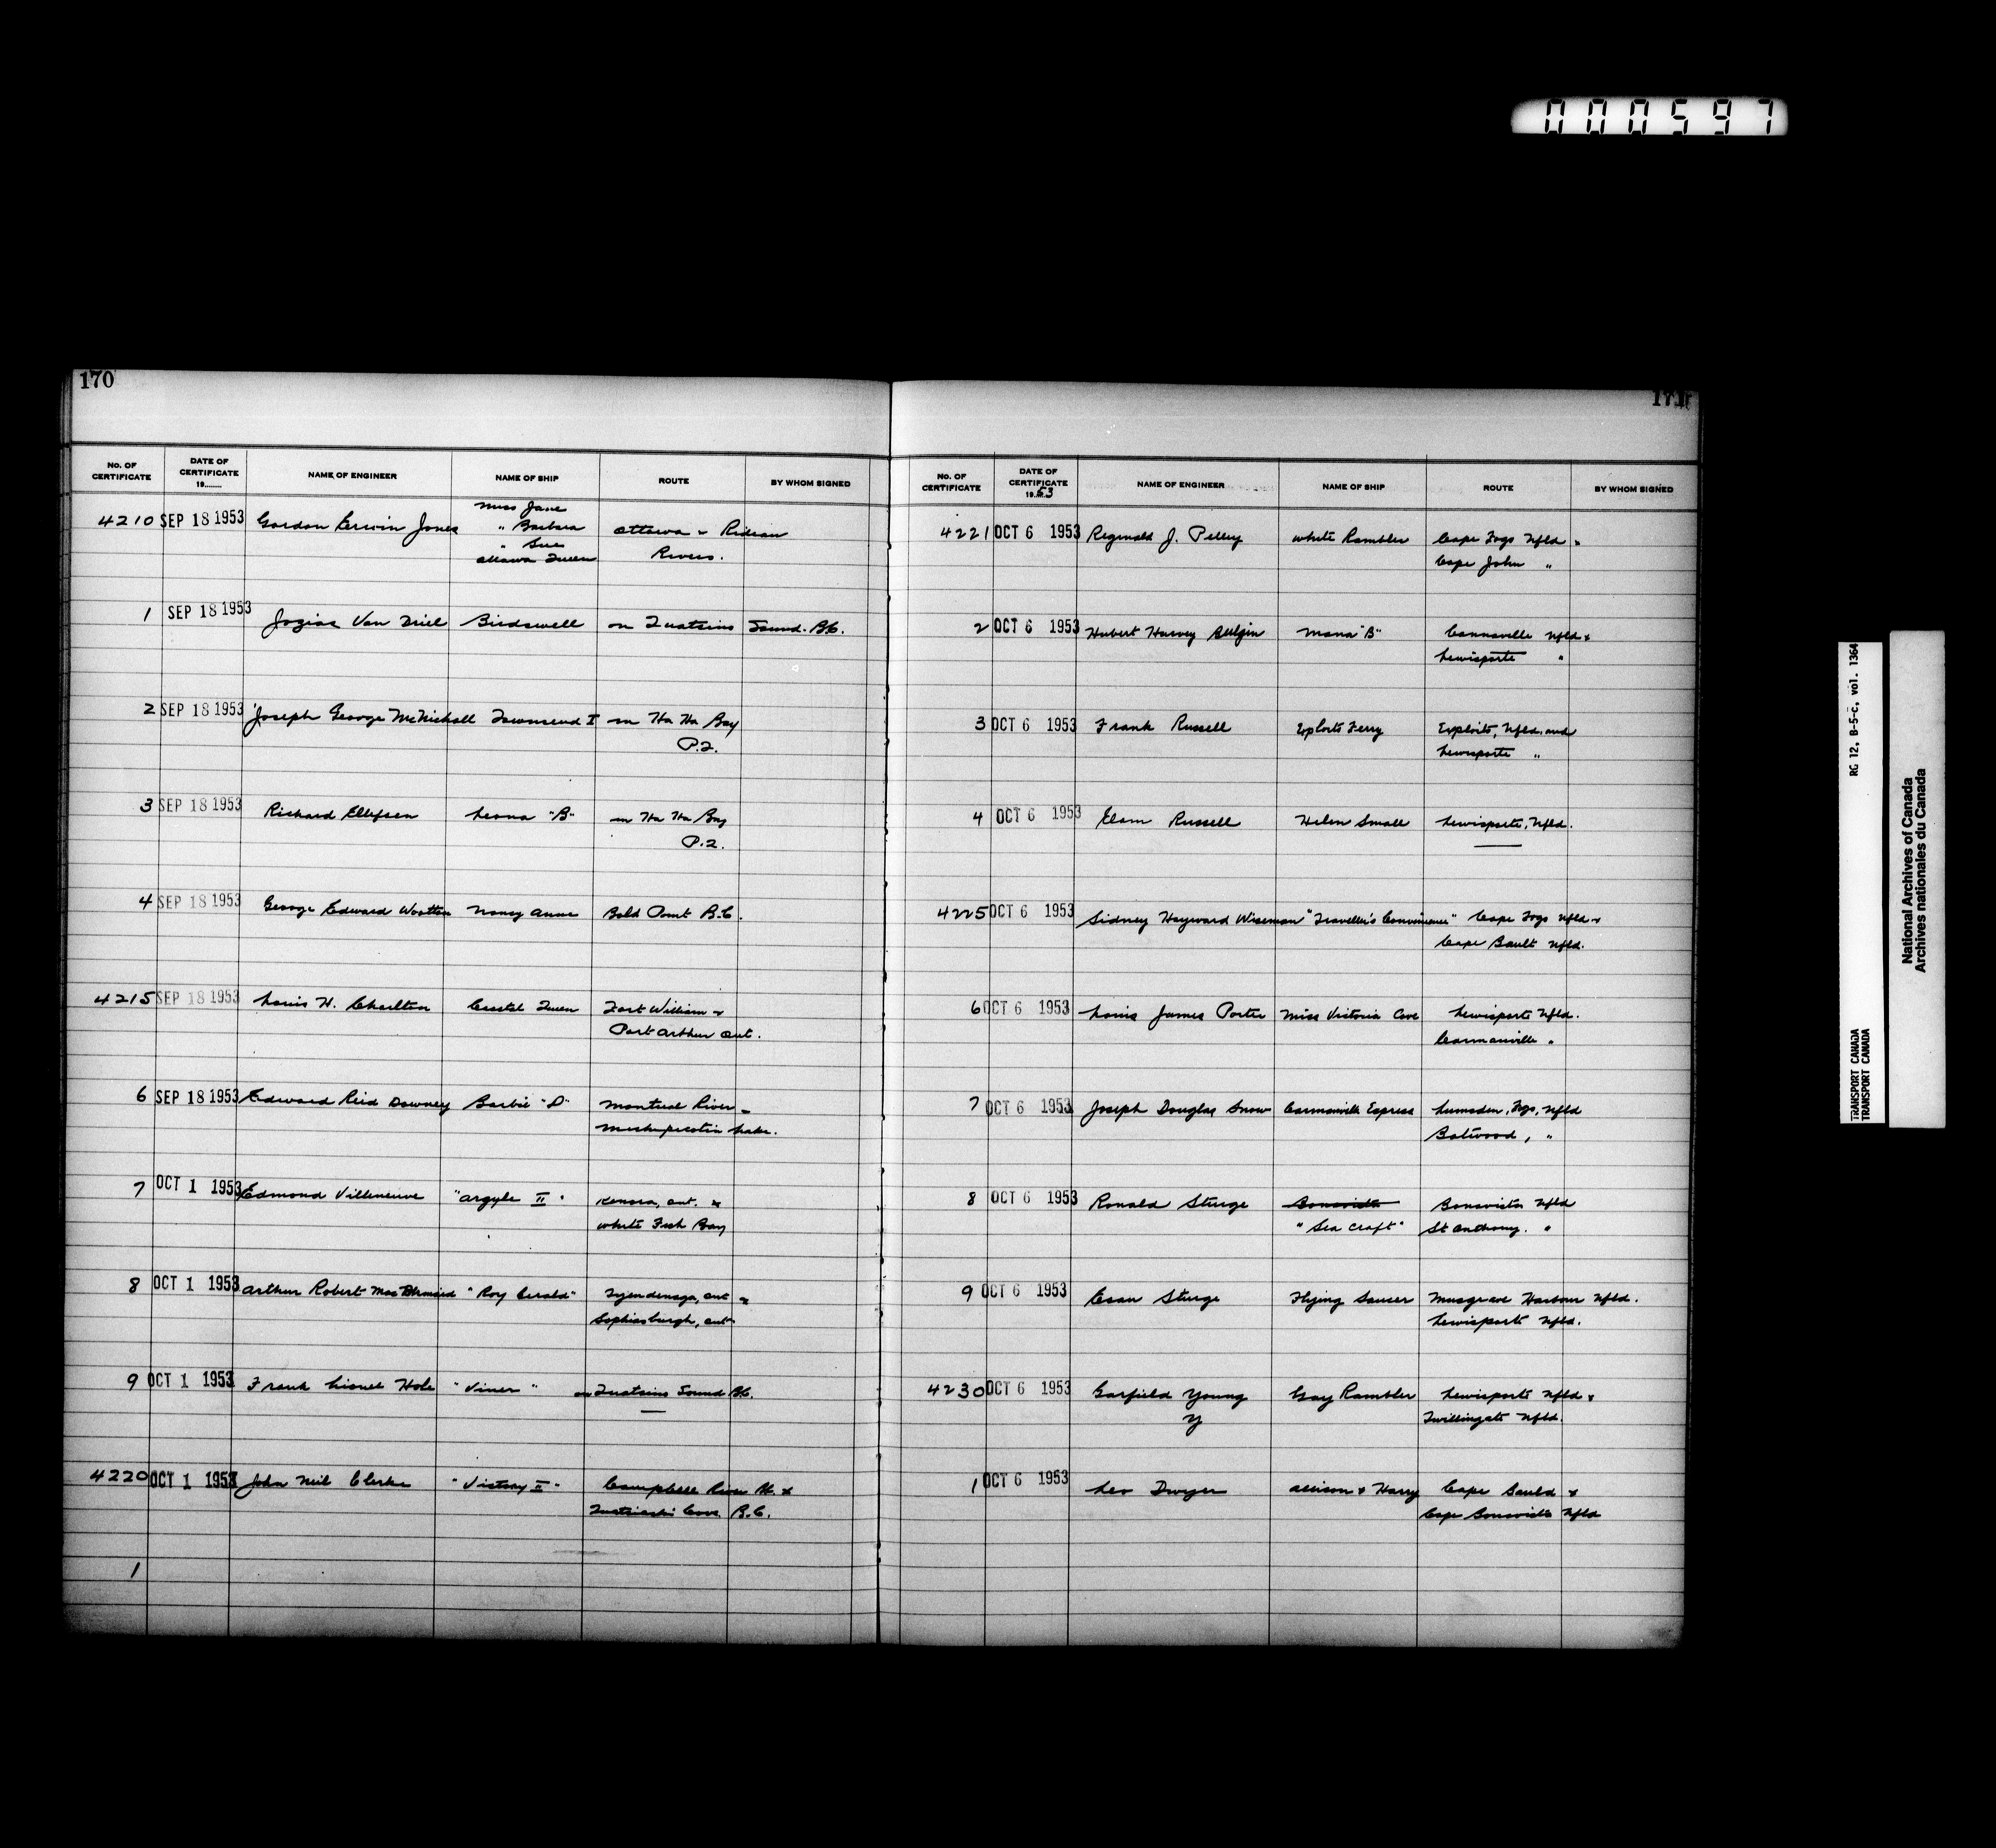 000597
170
No. OF CERTIFICATE DATE OF CERTIFICATE 19........ NAME OF ENGINEER NAME OF SHIP ROUTE BY WHOM SIGNED
Miss Jane
4210 SEP 18 1953 Gordon Erwin Jones " Barbara Ottawa & Rideau
" Sue Rivers.
Ottawa Queen
1 SEP 18 1953 Jozias Van Driel Birdswell on Quatsino Sound. B.C.
2 SEP 18 1953 Joseph George McNicholl Townsend I on Ha Ha Bay
P.Q.
3 SEP 18 1953 Richard Ellefsen Leona "B" on Ha Ha Bay
P.Q.
4 SEP 18 1953 George Edward Wootton Nancy Anne Bold Point B.C.
4215 SEP 18 1953 Louis H. Charlton Coastal Queen Fort William &
Port Arthur Ont.
6 SEP 18 1953 Edward Reid Downey Barbie "D" Montreal River -
Lake.
7 OCT 1 1953 Edmond Villeneuve "Argyle II" Kenora, Ont. &
White Fish Bay
8 OCT 1 1953 Arthur Robert "Roy Gerald" Tyendenaga, Ont &
Sophiasburgh, Ont.
9 OCT 1 1953 Frank Lionel Hole "Viner" on Quatsino Sound B.C.
4220 OCT 1 1953 John Neil Clarke "Victory II" Campbell River &
Quathiaski Cove B.C.
1
171
No. OF CERTIFICATE DATE OF CERTIFICATE 1953 NAME OF ENGINEER NAME OF SHIP ROUTE BY WHOM SIGNED
4221 OCT 6 1953 Reginald J. Pelley White Rambler Cape Fogo Nfld &
Cape John "
2 OCT 6 1953 Hubert Harvey Bulgin Mona "B" Carmanville Nfld &
Lewisporte "
3 OCT 6 1953 Frank Russell Exploits Ferry Exploits, Nfld. and
Lewisporte "
4 OCT 6 1953 Elam Russell Helen Small Lewisporte, Nfld.
4225 OCT 6 1953 Sidney Hayward Wiseman "Traveller's Convenience" Cape Fogo Nfld &
Cape Bauld Nfld.
6 OCT 6 1953 Louis James Porter Miss Victoria Cove Lewisporte Nfld.
Carmanville "
7 OCT 6 1953 Joseph Douglas Snow Carmanville Express Lumsden, Fogo, Nfld
Botwood, "
8 OCT 6 1953 Ronald Sturge Bonavista Bonavista Nfld
"Sea Craft" St Anthony. "
9 OCT 6 1953 Esau Sturge Flying Saucer Musgrave Harbour Nfld.
Lewisporte Nfld.
4230 OCT 6 1953 Garfield Young Gay Rambler Lewisporte Nfld &
Y Twillingate Nfld.
1 OCT 6 1953 Leo Dwyer Allison & Harry Cape Bauld &
Cape Bonavista Nfld
RG 12, B-5-c, vol. 1364
TRANSPORT CANADA
TRANSPORT CANADA
National Archives of Canada
Archives nationales du Canada